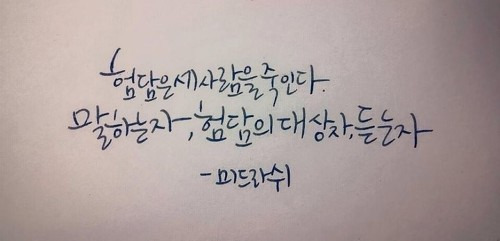 험담은 세 사람을 죽인다.
말하는 자, 험담의 대상자, 듣는 자
- 미드라쉬